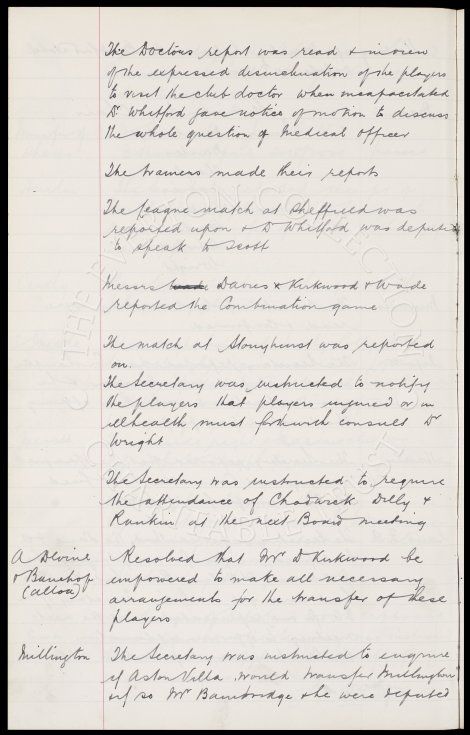 The Doctors report was read & in view
of the expressed disinclination of the players
to visit the club doctor when incapacitated
Dr Whitford gave notice of motion to discuss
the whole question of Medical Officer
The trainers made their reports
The League match at Sheffield was
reported upon & Dr Whitford was deputed
to speak to Scott
Messrs Davies & Kirkwood & Wade
reported the Combination game
The match at Stonyhurst was reported
on.
The Secretary was instructed to notify
the players that players injured or in
illhealth must forthwith consult Dr
Wright
The Secretary was instructed to require
the attendance of Chadwick Dilly &
Rankin at the next Board meeting
A Devine
& Banshop
(alloa)
Resolved that Mr D Kirkwood be
empowered to make all necessary
arrangements for the transfer of these
players
Millington
The Secretary was instructed to enquire
if Aston Villa would transfer Millington
if so Mr Bainbridge & he were deputed
THE EVERTON COLLECTION